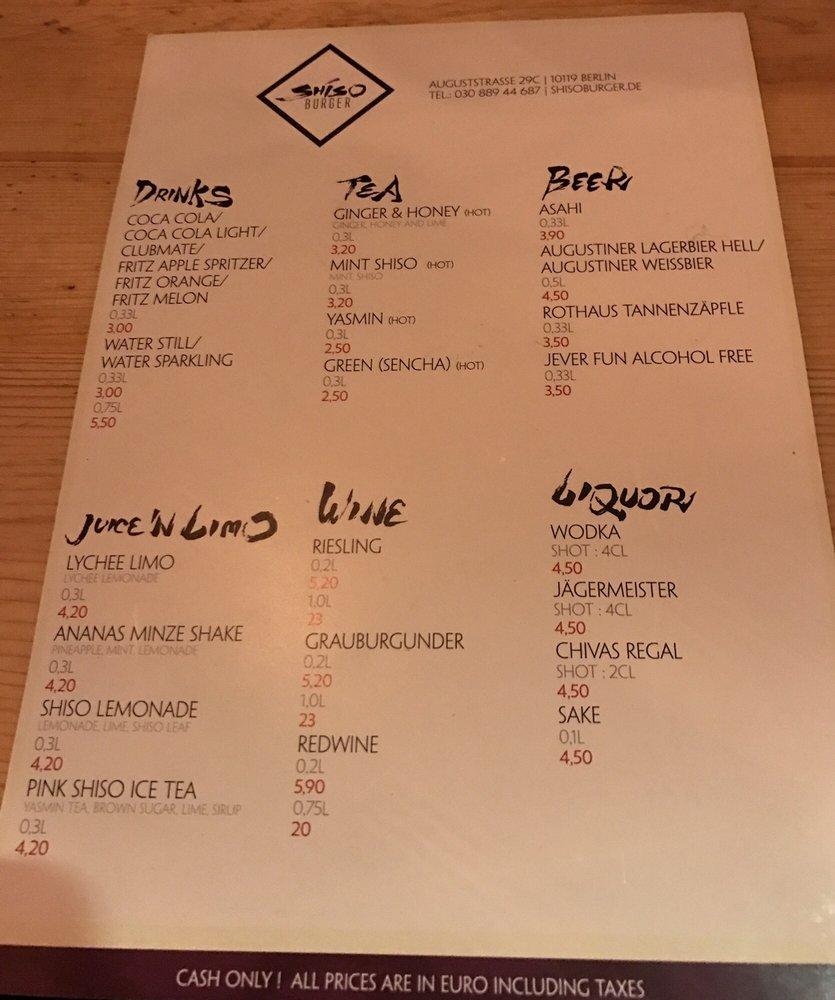 SHISO
BURGER
AUGUSTSTRASSE 29C | 10119 BERLIN
TEL.: 030 889 44 687 | SHISOBURGER.DE
DRINKS
COCA COLA/
COCA COLA LIGHT/
CLUBMATE/
FRITZ APPLE SPRITZER/
FRITZ ORANGE/
FRITZ MELON
0,33L
3,00
WATER STILL/
WATER SPARKLING
0,33L
3,00
0,75L
5,50
TEA
GINGER & HONEY (HOT)
GINGER, HONEY AND LIME
0,3L
3,20
MINT SHISO (HOT)
MINT, SHISO
0,3L
3,20
YASMIN (HOT)
0,3L
2,50
GREEN (SENCHA) (HOT)
0,3L
2,50
BEER
ASAHI
0,33L
3,90
AUGUSTINER LAGERBIER HELL/
AUGUSTINER WEISSBIER
0,5L
4,50
ROTHAUS TANNENZÄPFLE
0,33L
3,50
JEVER FUN ALCOHOL FREE
0,33L
3,50
JUICE'N LIMO
LYCHEE LIMO
LYCHEE LEMONADE
0,3L
4,20
ANANAS MINZE SHAKE
PINEAPPLE, MINT, LEMONADE
0,3L
4,20
SHISO LEMONADE
LEMONADE, LIME, SHISO LEAF
0,3L
4,20
PINK SHISO ICE TEA
YASMIN TEA, BROWN SUGAR, LIME, SIRUP
0,3L
4,20
WINE
RIESLING
0,2L
5,20
1,0L
23
GRAUBURGUNDER
0,2L
5,20
1,0L
23
REDWINE
0,2L
5,90
0,75L
20
LIQUOR
WODKA
SHOT : 4CL
4,50
JÄGERMEISTER
SHOT : 4CL
4,50
CHIVAS REGAL
SHOT : 2CL
4,50
SAKE
0,1L
4,50
CASH ONLY ! ALL PRICES ARE IN EURO INCLUDING TAXES